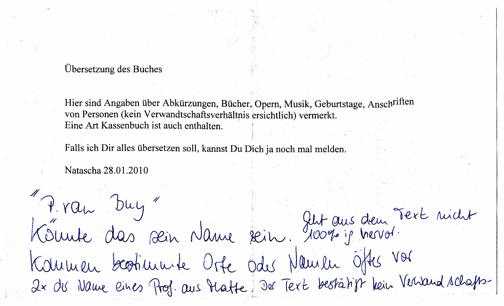 Übersetzung des Buches
Hier sind Angaben über Abkürzungen, Bücher, Opern, Musik, Geburtstage, Anschriften
von Personen (kein Verwandtschaftsverhältnis ersichtlich) vermerkt.
Eine Art Kassenbuch ist auch enthalten.
Falls ich Dir alles übersetzen soll, kannst Du Dich ja noch mal melden.
Natascha 28.01.2010
"P. van Buy"
Könnte das sein Name sein. Geht aus dem Text nicht
100%ig hervor.
Kommen bestimmte Orte oder Namen öfters vor
2x der Name eines Prof. aus Der Text bestätigt kein Verwandschafts-